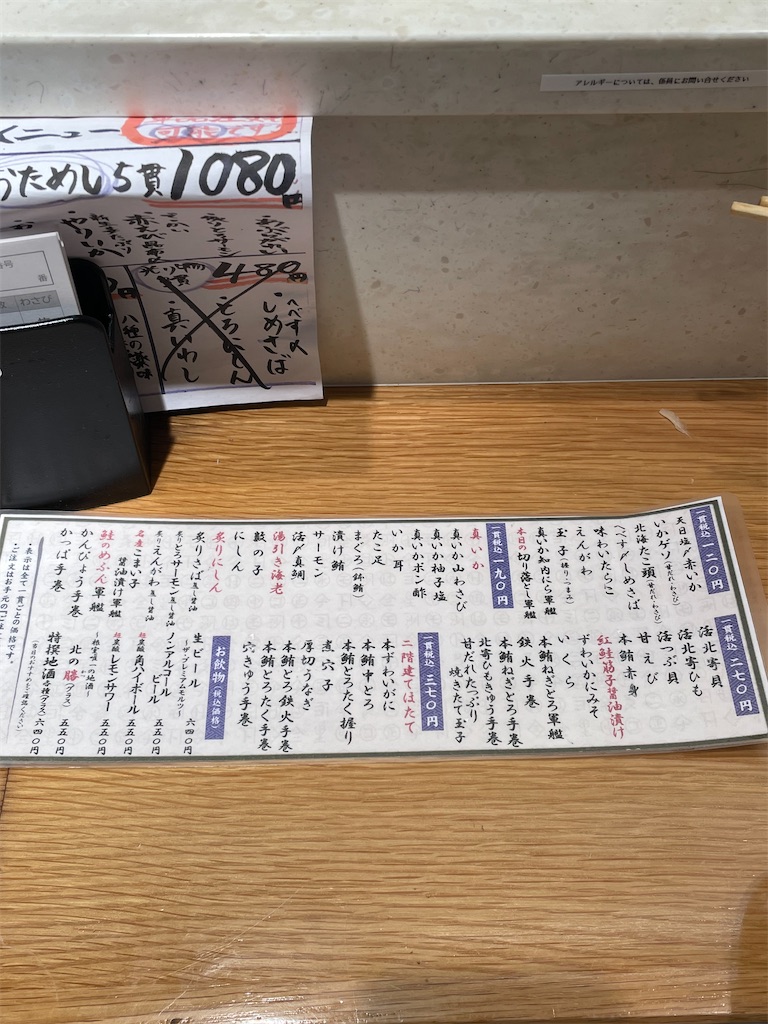 アレルギーについては、係員にお問い合せください
メニュー
おためし5貫1080円
光り物
480円
へべす〆
しめさば
とろにしん
真いわし
八種の薬味
やりいか
番
わさび
一貫税込 一二〇円
天日塩〆赤いか
いかゲソ(甘だれ・わさび)
北海たこ頭(甘だれ・わさび)
へべす〆しめさば
味わいたらこ
えんがわ
玉子(握り・つまみ)
真いか知内にら軍艦
本日の切り落とし軍艦
一貫税込 一九〇円
真いか
真いか山わさび
真いか柚子塩
真いかポン酢
いか耳
たこ足
まぐろ(鉢鮪)
漬け鮪
サーモン
活〆真鯛
湯引き海老
数の子
にしん
炙りにしん
炙りさば蒸し醤油
炙りとろサーモン蒸し醤油
炙りえんがわ蒸し醤油
名物こまい子
醤油漬け軍艦
鮭のめぶん軍艦
かんぴょう手巻
かっぱ手巻
・表示は全て一貫ごとの価格です。
一貫税込 二七〇円
活北寄貝
活北寄ひも
活つぶ貝
甘えび
本鮪赤身
紅鮭筋子醤油漬け
ずわいかにみそ
いくら
本鮪ねぎとろ軍艦
鉄火手巻
本鮪ねぎとろ手巻
北寄ひもきゅう手巻
甘だれたっぷり
焼きたて玉子
一貫税込 三七〇円
二階建てほたて
本ずわいがに
本鮪中とろ
本鮪とろたく握り
煮穴子
厚切うなぎ
本鮪とろ鉄火手巻
本鮪とろたく手巻
穴きゅう手巻
お飲物(税込価格)
生ビール
〜ザ・プレミアムモルツ〜 六四〇円
ノンアルコール
ビール 五五〇円
超炭酸角ハイボール 五五〇円
超炭酸レモンサワー 五五〇円
〜根室唯一の地酒〜
北の勝(グラス) 五五〇円
特撰地酒各種(グラス)六四〇円